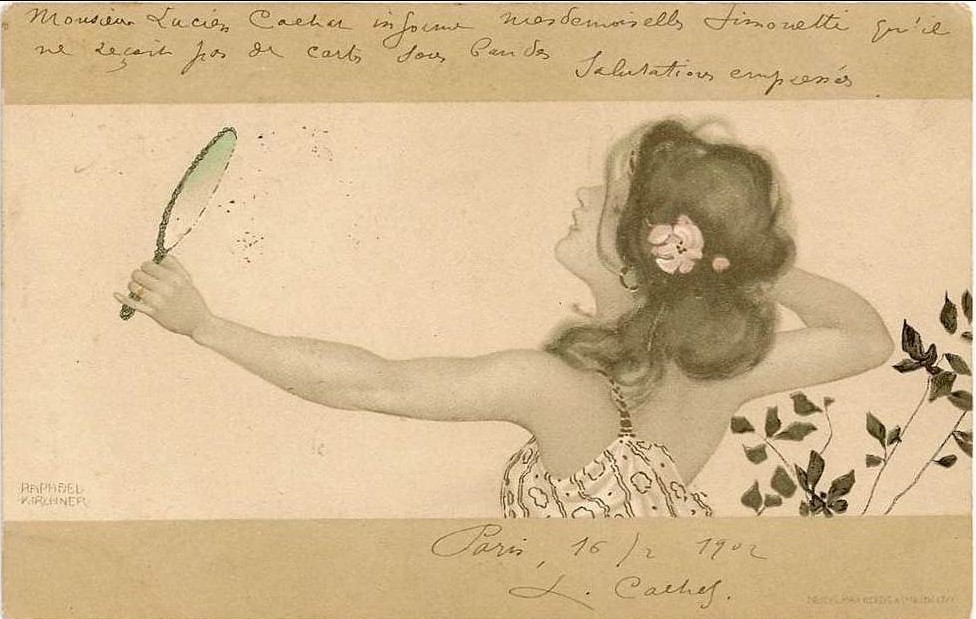 Monsieur Lucien Cachet informe mesdemoiselles Simonetti qu'il
ne reçoit pas de carts sous bandes
Salutations empressés
RAPHAEL
KIRCHNER
Paris, 16/2 1902
L. Cachet.